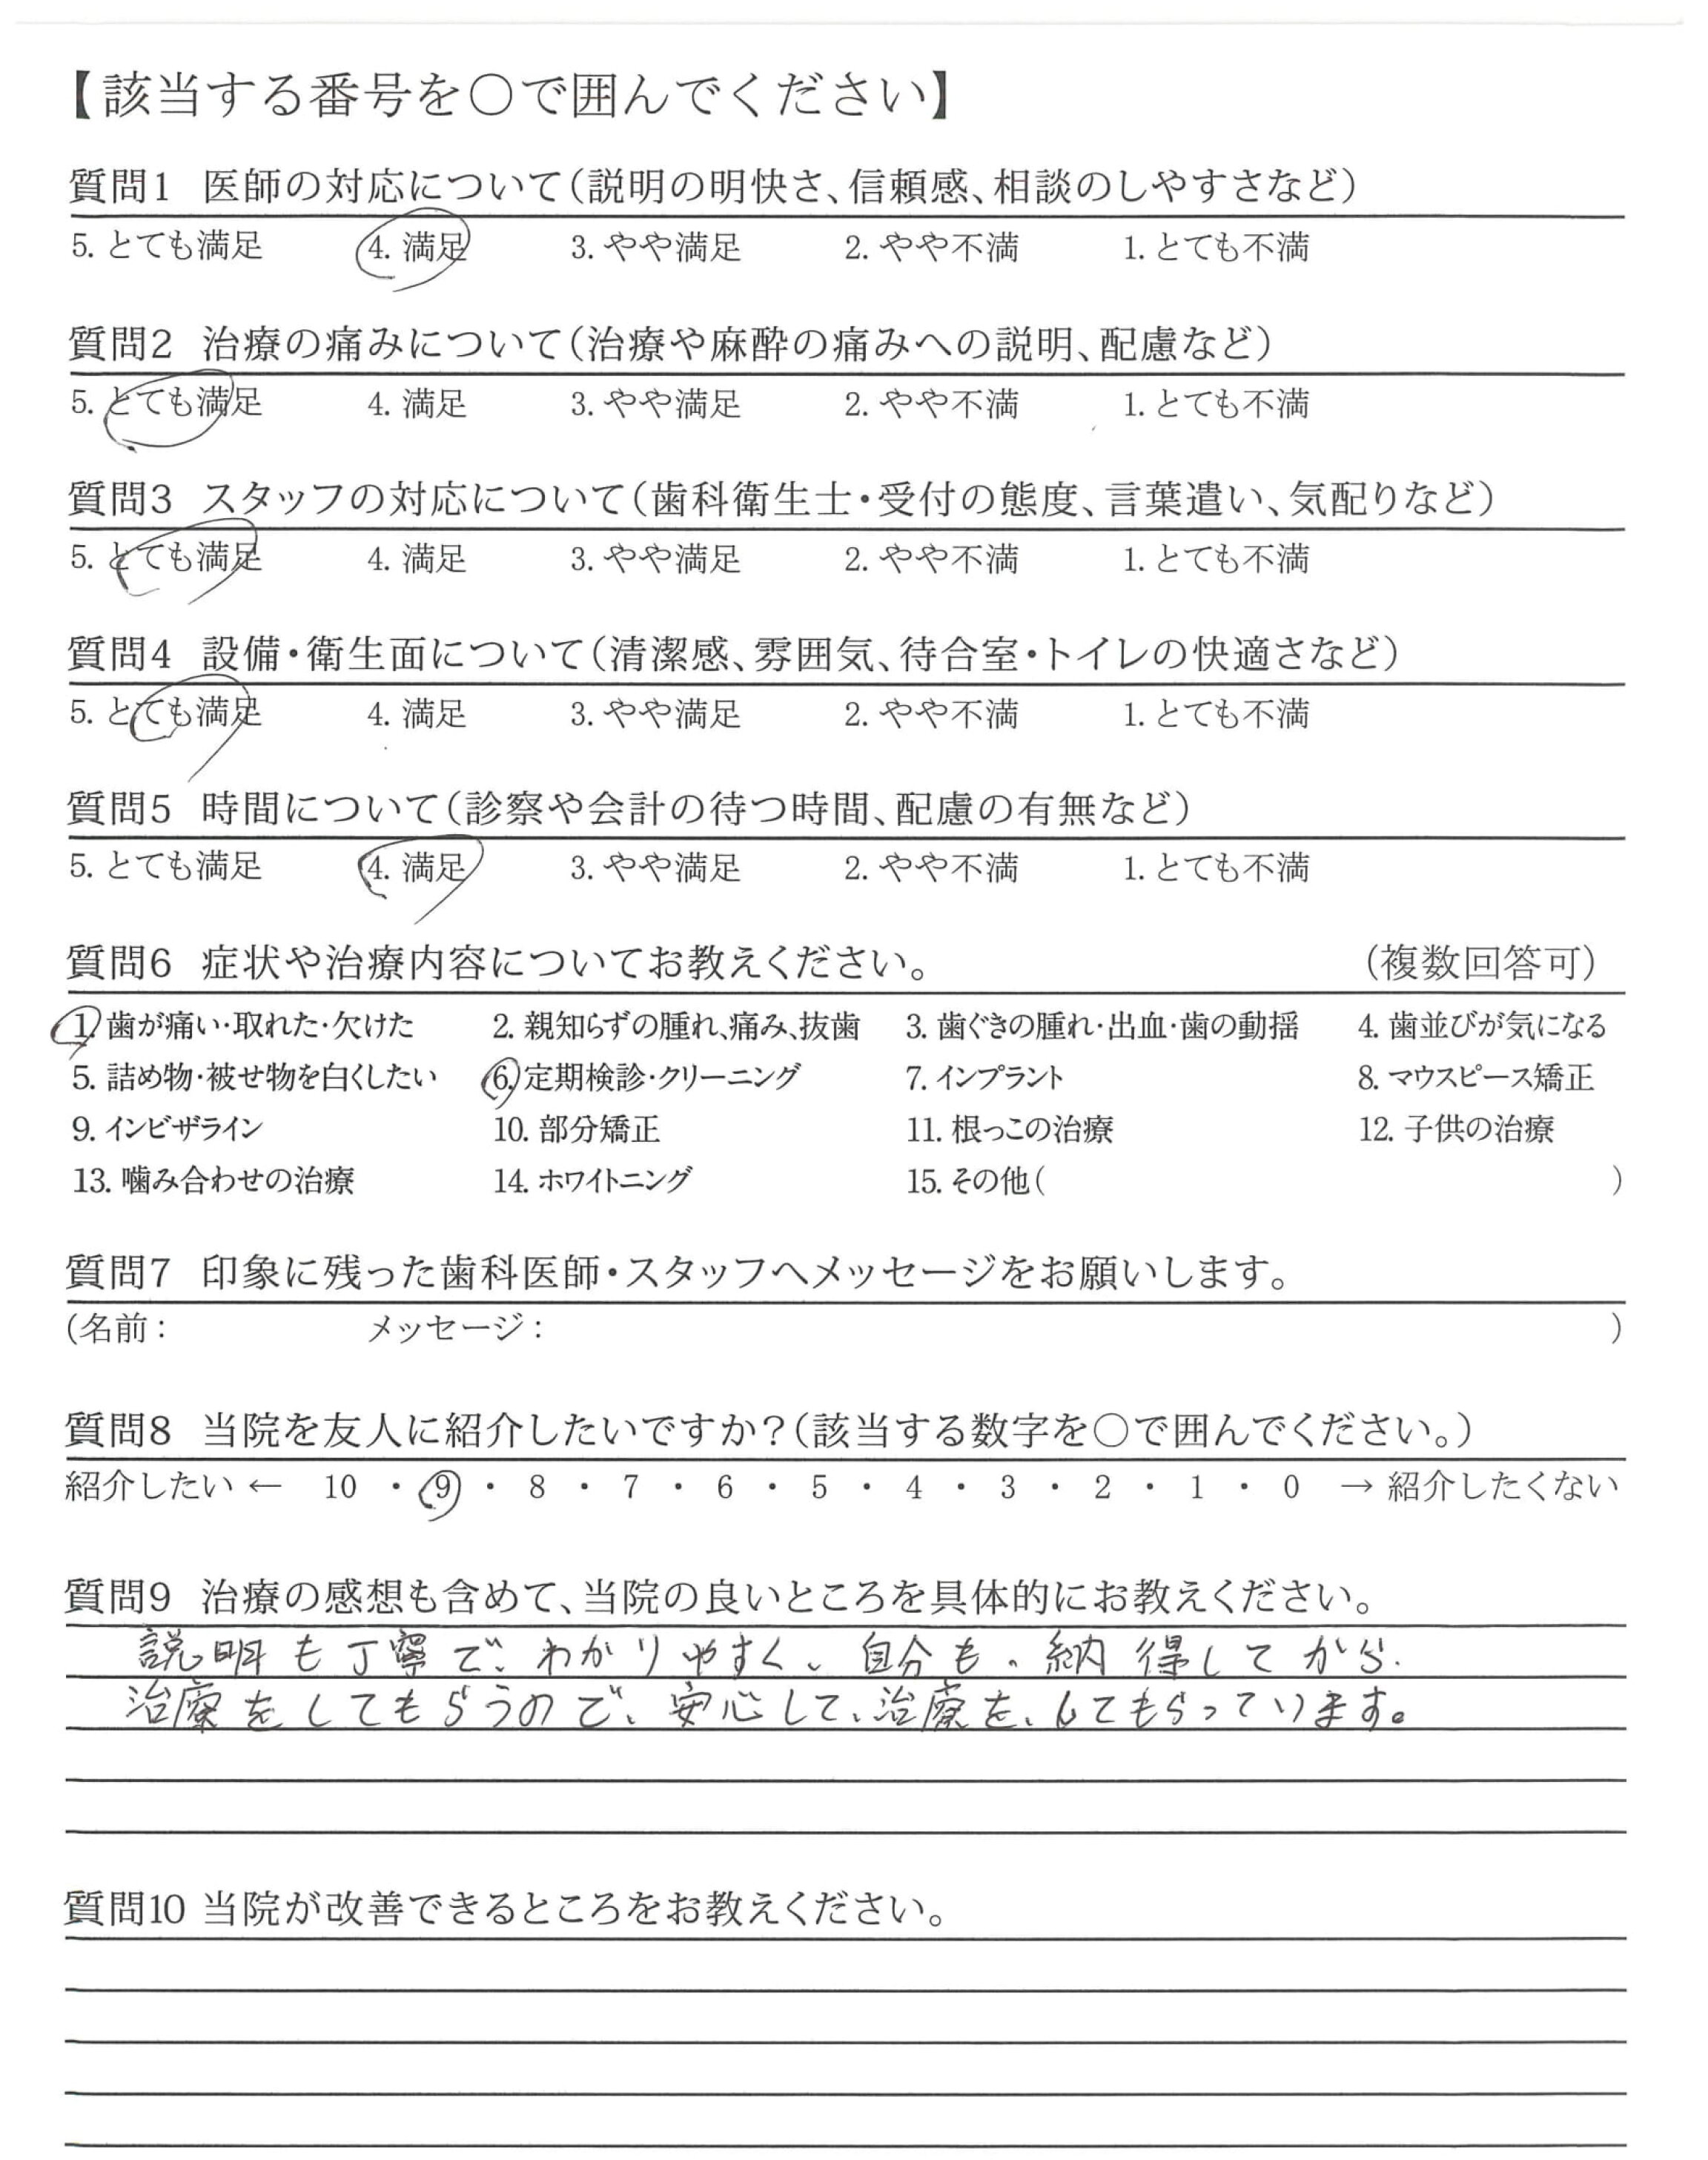 【該当する番号を○で囲んでください】
質問1 医師の対応について(説明の明快さ、信頼感、相談のしやすさなど)
5. とても満足 4. 満足 3. やや満足 2. やや不満 1. とても不満
質問2 治療の痛みについて(治療や麻酔の痛みへの説明、配慮など)
5. とても満足 4. 満足 3. やや満足 2. やや不満 1. とても不満
質問3 スタッフの対応について(歯科衛生士・受付の態度、言葉遣い、気配りなど)
5. とても満足 4. 満足 3. やや満足 2. やや不満 1. とても不満
質問4 設備・衛生面について(清潔感、雰囲気、待合室・トイレの快適さなど)
5. とても満足 4. 満足 3. やや満足 2. やや不満 1. とても不満
質問5 時間について(診察や会計の待つ時間、配慮の有無など)
5. とても満足 4. 満足 3. やや満足 2. やや不満 1. とても不満
質問6 症状や治療内容についてお教えください。 (複数回答可)
1. 歯が痛い・取れた・欠けた 2. 親知らずの腫れ、痛み、抜歯 3. 歯ぐきの腫れ・出血・歯の動揺 4. 歯並びが気になる
5. 詰め物・被せ物を白くしたい 6. 定期検診・クリーニング 7. インプラント 8. マウスピース矯正
9. インビザライン 10. 部分矯正 11. 根っこの治療 12. 子供の治療
13. 噛み合わせの治療 14. ホワイトニング 15. その他( )
質問7 印象に残った歯科医師・スタッフへメッセージをお願いします。
(名前: メッセージ: )
質問8 当院を友人に紹介したいですか?(該当する数字を○で囲んでください。)
紹介したい ← 10 ・ 9 ・ 8 ・ 7 ・ 6 ・ 5 ・ 4 ・ 3 ・ 2 ・ 1 ・ 0 → 紹介したくない
質問9 治療の感想も含めて、当院の良いところを具体的にお教えください。
説明も丁寧で、わかりやすく、自分も、納得してから、
治療をしてもらうので、安心して、治療を、してもらっています。
質問10 当院が改善できるところをお教えください。